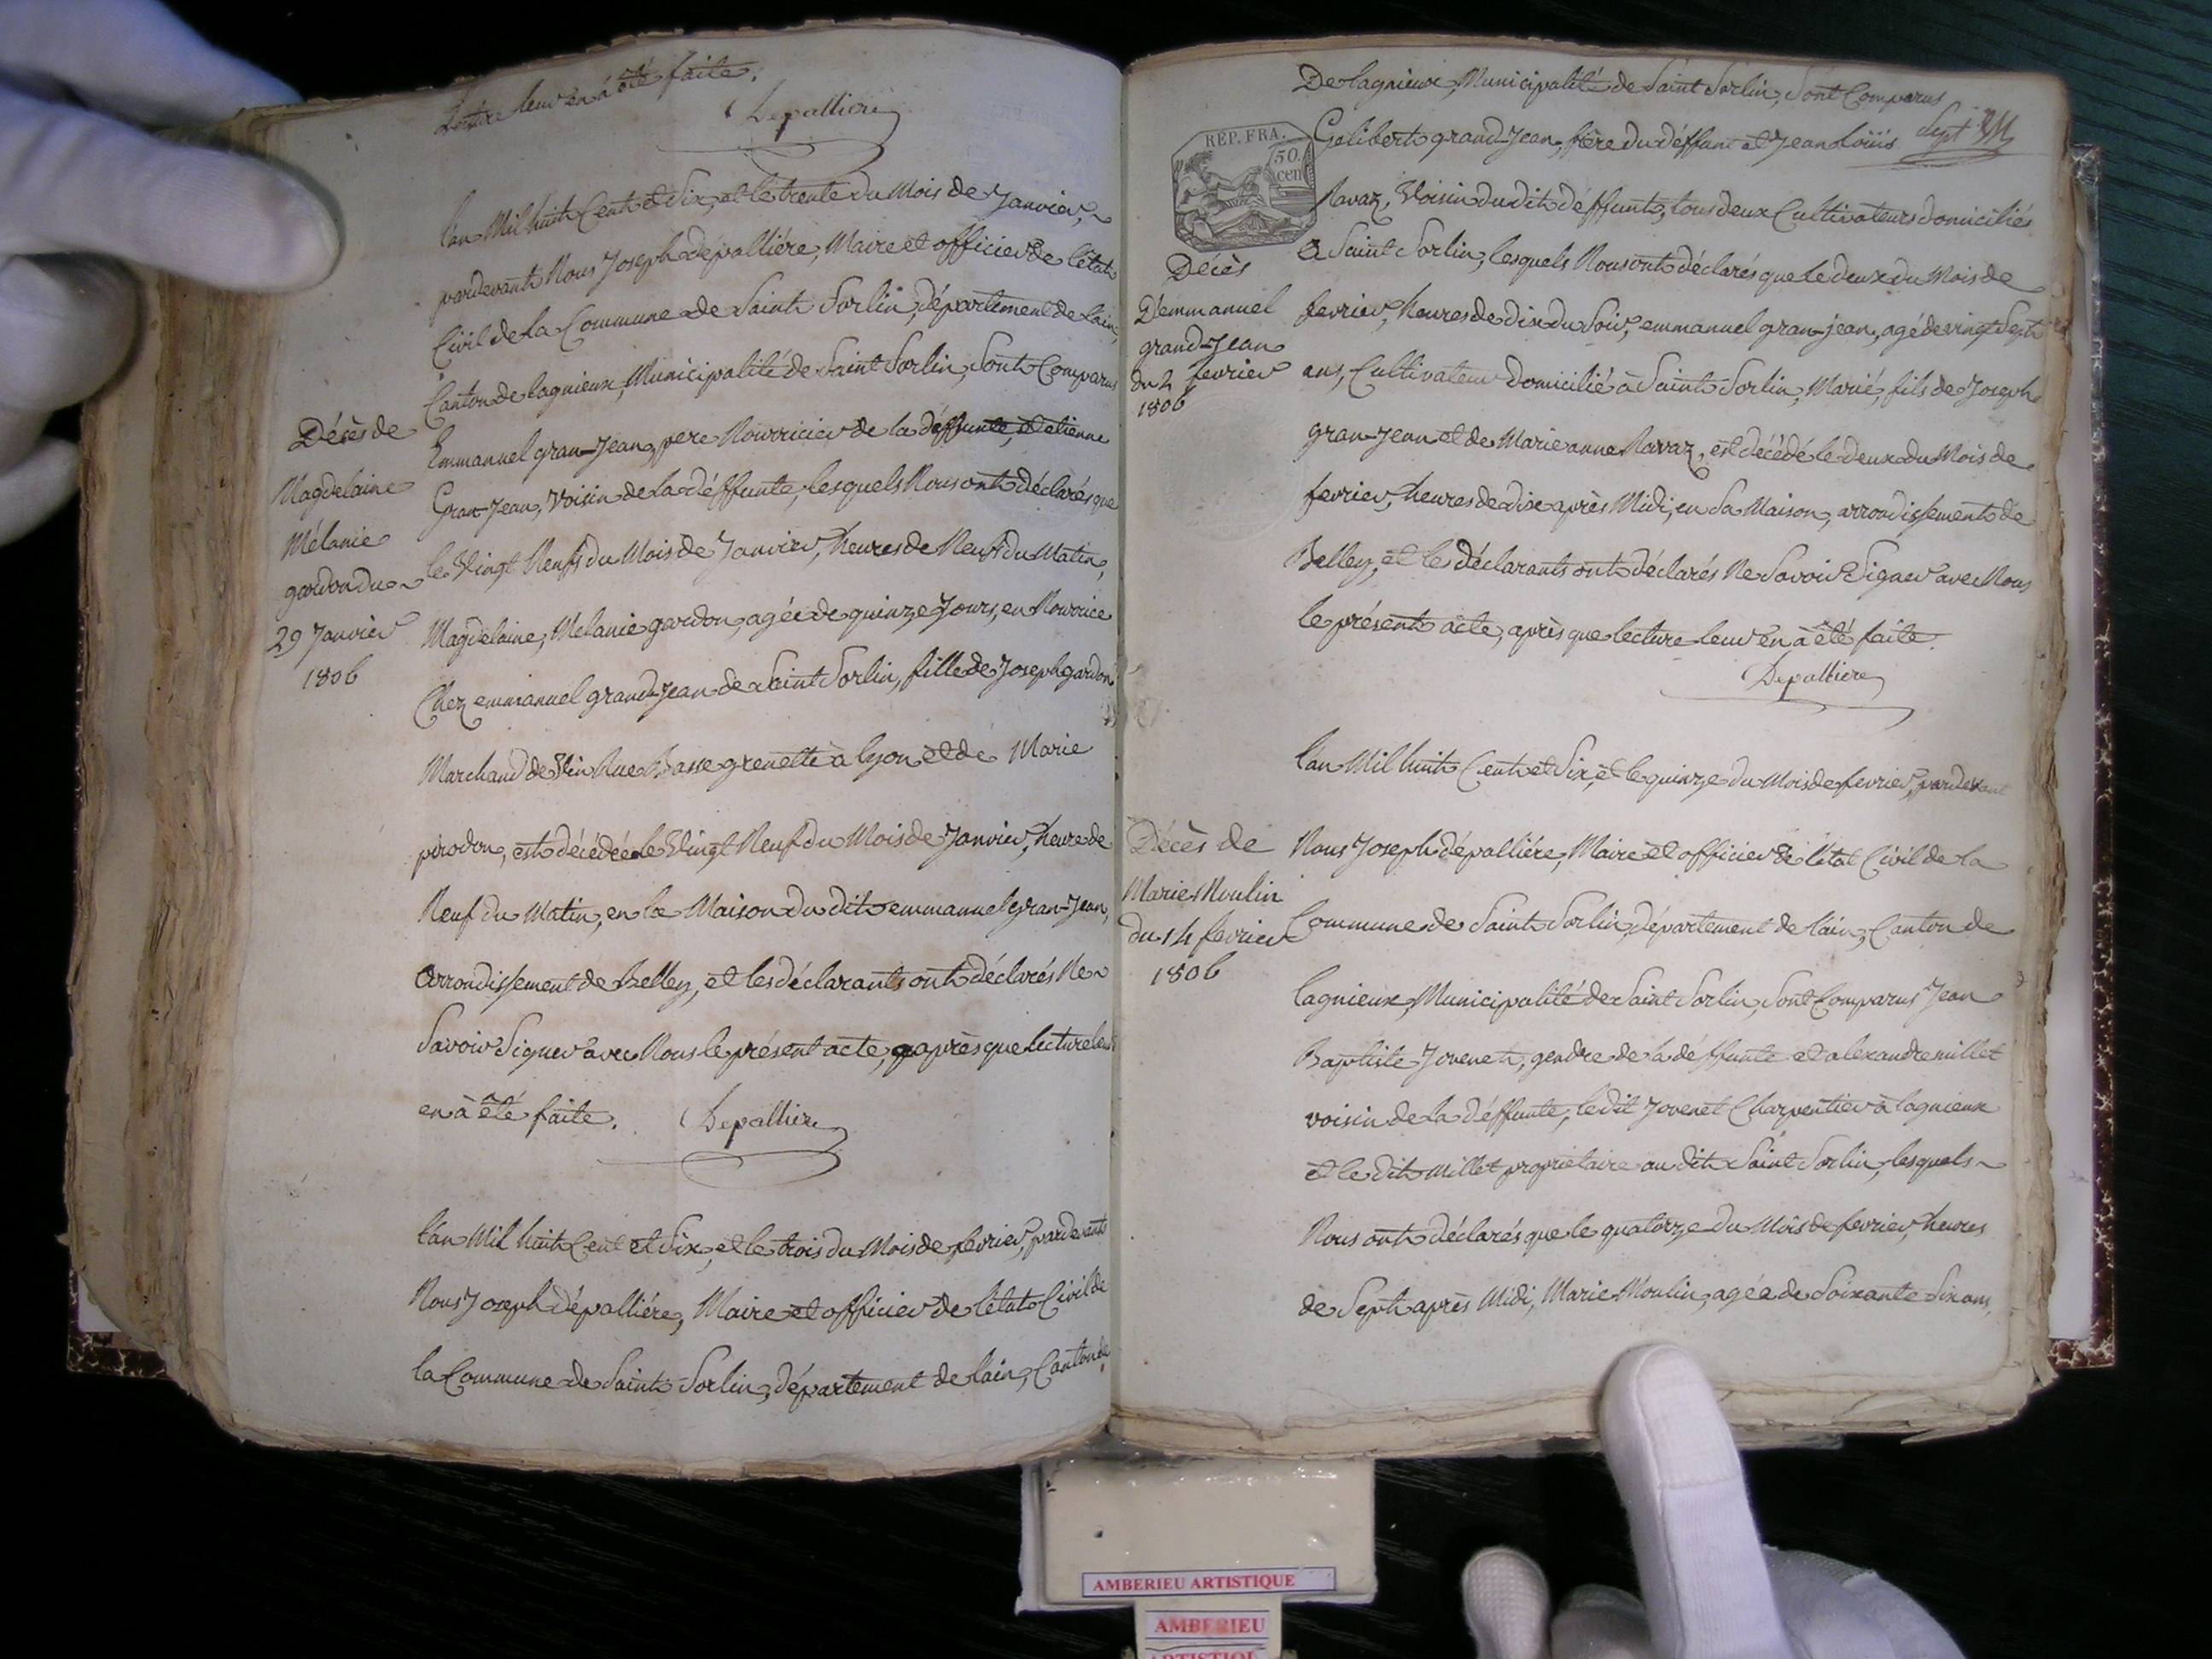 Lecture leur en à été faite.
Depalliere
L'an Mil huit Cent et Six, et le trente du Mois de Janvier,
pardevant Nous Joseph dépalliére, Maire et officier de l'état
Civil de la Commune de Saint Sorlin, département de lain,
Canton de lagnieux, Municipalité de Saint Sorlin, Sont Comparus
Emmanuel gran-Jean, pere Nourricier de la déffunte, et etienne
Gran-Jean, Voisin de la déffunte, lesquels Nous ont déclarés que
le Vingt Neuf du Mois de Janvier, heures de Neuf du Matin,
Magdelaine, Melanie gardon, agée de quinze Jours, en Nourrice
Chez emmanuel grand-Jean de Saint Sorlin, fille de Joseph gardon
Marchand de Vin Rue Basse grenette à lyon et de Marie
pirodon, est décédée le Vingt Neuf du Mois de Janvier, heure de
Neuf du Matin, en la Maison du dit emmanuel gran-Jean,
arrondissement de Belley, et les déclarants ont déclarés Ne
Savoir Signer avec Nous le présent acte, après que lecture leur
en à été faite. Depalliere
Décès de
Magdelaine
Mélanie
gardon du
29 Janvier
1806
L'an Mil huit Cent et Six, et le trois du Mois de fevrier, pardevant
Nous Joseph dépalliére, Maire et officier de l'état Civil de
la Commune de Saint Sorlin, département de lain, Canton de
De lagnieux, Municipalité de Saint Sorlin, Sont Comparus
Sept
REP. FRA.
50.
cen
Gelibert grand-Jean, frère du déffunt et Jean Louïs
Ravaz, Voisin du dit déffunt, tous deux Cultivateurs domiciliés
a Saint Sorlin, lesquels Nous ont déclarés que le deux du Mois de
fevrier, heures de dix du Soir, emmanuel gran-jean, agé de vingt Sept
ans, Cultivateur domicilié à Saint Sorlin, Marié, fils de Joseph
gran-Jean et de Marie anne Ravaz, est décédé le deux du Mois de
fevrier, heures de dix après Midi, en Sa Maison, arrondissement de
Belley, et les déclarants ont déclarés Ne Savoir Signer avec Nous
le présent acte, après que lecture leur en à été faite.
Depalliere
Décès
D'emmanuel
grand-Jean
du 2 fevrier
1806
L'an Mil huit Cent et Six, et le quinze du Mois de fevrier, pardevant
Nous Joseph dépalliére, Maire et officier de l'état Civil de la
Commune de Saint Sorlin, département de l'ain, Canton de
lagnieux, Municipalité de Saint Sorlin, Sont Comparus Jean
Baptiste Jovenet, gendre de la déffunte et alexandre millet
voisin de la déffunte, le dit Jovenet Charpentier à lagnieux
et le dit millet propriétaire au dit Saint Sorlin, lesquels
Nous ont déclarés que le quatorze du Mois de fevrier, heures
de Sept après Midi, Marie Moulin, agée de Soixante Six ans,
Décès de
Marie Moulin
du 14 fevrier
1806
AMBERIEU ARTISTIQUE
AMBERIEU
ARTISTIQUE